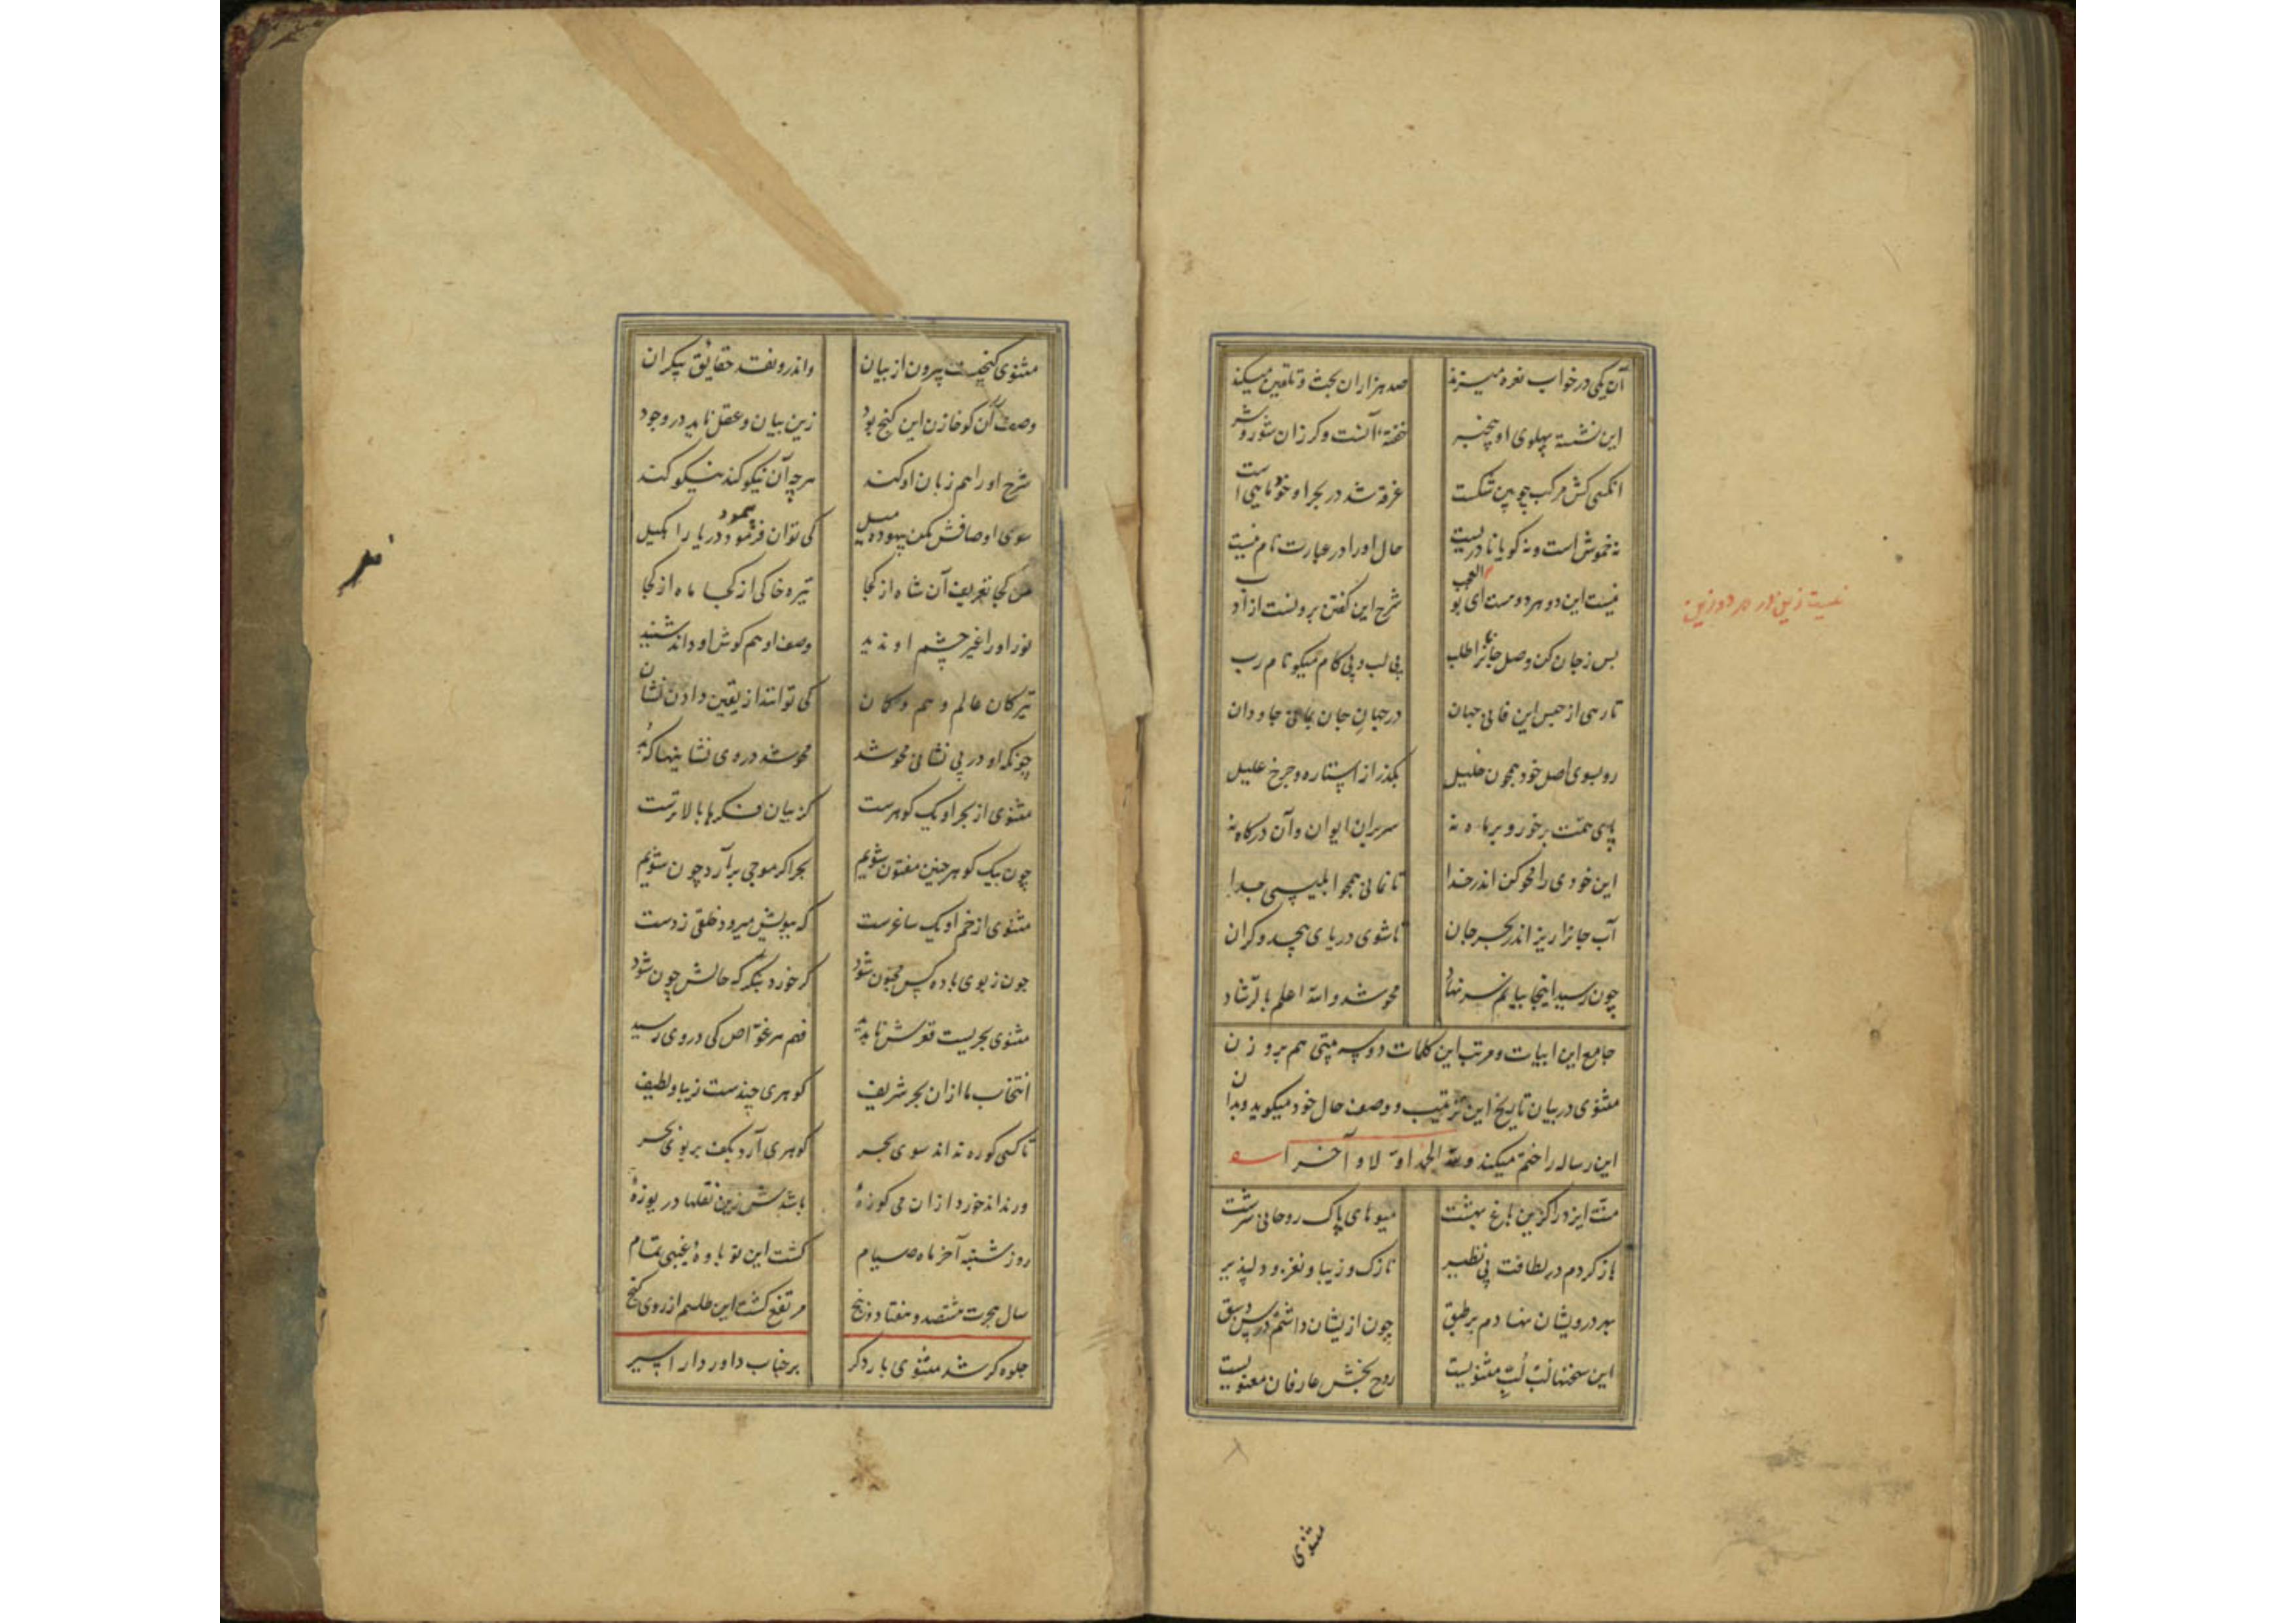 آن یکی در خواب نعره میزند صد هزاران بحث و تلقین میکند
این نشسته پهلوی او بیخبر خفته آنست و کر زان شور و شر
آنکسی کش مرکب چوبین شکست غرقه شد در بحر او خود ماهی است
نه خموش است و نه کویا نادریست حال او را در عبارت نام نیست
نیست این دو هر دو هست ای بو العجب شرح این کفتن برونست از ادب
نیست زین دو هر دو زین
بس ز جان کن وصل جانانرا طلب بی لب و بی کام میکو نام رب
تا رهی از حبس این فانی جهان در جهان جان بمانی جاودان
رو بسوی اصل خود همچون خلیل بکذر از استاره و چرخ علیل
پای همت بر خور و بر ماه نه سر بران ایوان و آن درکاه نه
این خودی را محو کن اندر خدا تا نمانی همچو ابلیسی جدا
آب جانرا ریز اندر بحر جان تا شوی دریای بیحد و کران
چون رسید اینجا بیانم سر نهاد محو شد والله اعلم بالرشاد
جامع این ابیات و مرتب این کلمات دو سه بیتی هم بر وزن
مثنوی در بیان تاریخ این ترتیب و وصف حال خود میکوید و بدان
این رساله را ختم میکند ولله الحمد اولا و آخرا
منت ایزد را کزین باغ بهشت میوهای پاک روحانی سرشت
باز کردم در لطافت بی نظیر نازک و زیبا و نغز و دلپذیر
بهر درویشان نهادم بر طبق چون ازیشان داشتم درس و سبق
این سخنها لب لب مثنویست روح بخش عارفان معنویست
مثنوی
مثنوی کنجیست بیرون از بیان واندرو نقد حقایق بیکران
وصف آن کو خازن این کنج بود زین بیان و عقل ناید در وجود
شرح او را هم زبان او کند هر چه آن نیکو کند نیکو کند
سوی اوصافش مکن بیهوده میل کی توان پیمود دریا را بکیل
من کجا تعریف آن شاه از کجا تیره خاکی از کجا ماه از کجا
نور او را غیر چشم او ندید وصف او هم کوش او داند شنید
تیرکان عالم وهم و کمان کی توانند از یقین دادن نشان
چونکه او در بی نشانی محو شد محو شد در وی نشانیها که بد
مثنوی از بحر او یک کوهرست کز بیان فکرها بالاترست
چون بیک کوهر چنین مفتون شویم بحر اکر موجی برآرد چون شویم
مثنوی از خم او یک ساغرست که ببویش میرود خلقی ز دست
چون ز بوی باده کس مجنون شود کر خورد بنکر که حالش چون شود
مثنوی بحریست قعرش ناپدید فهم هر غواص کی در وی رسید
انتخاب ما ازان بحر شریف کوهری چندست زیبا و لطیف
تا کسی کو ره نداند سوی بحر کوهری آرد بکف بر بوی بحر
ور نداند خورد ازان می کوزه باشدش زین نقلها دریوزه
روز شنبه آخر ماه صیام کشت این نوباوه غیبی تمام
سال هجرت هشتصد و هفتاد و پنج مرتفع کشت این طلسم از روی کنج
جلوه کر شد مثنوی بار دکر بر جناب داور دارا سپر